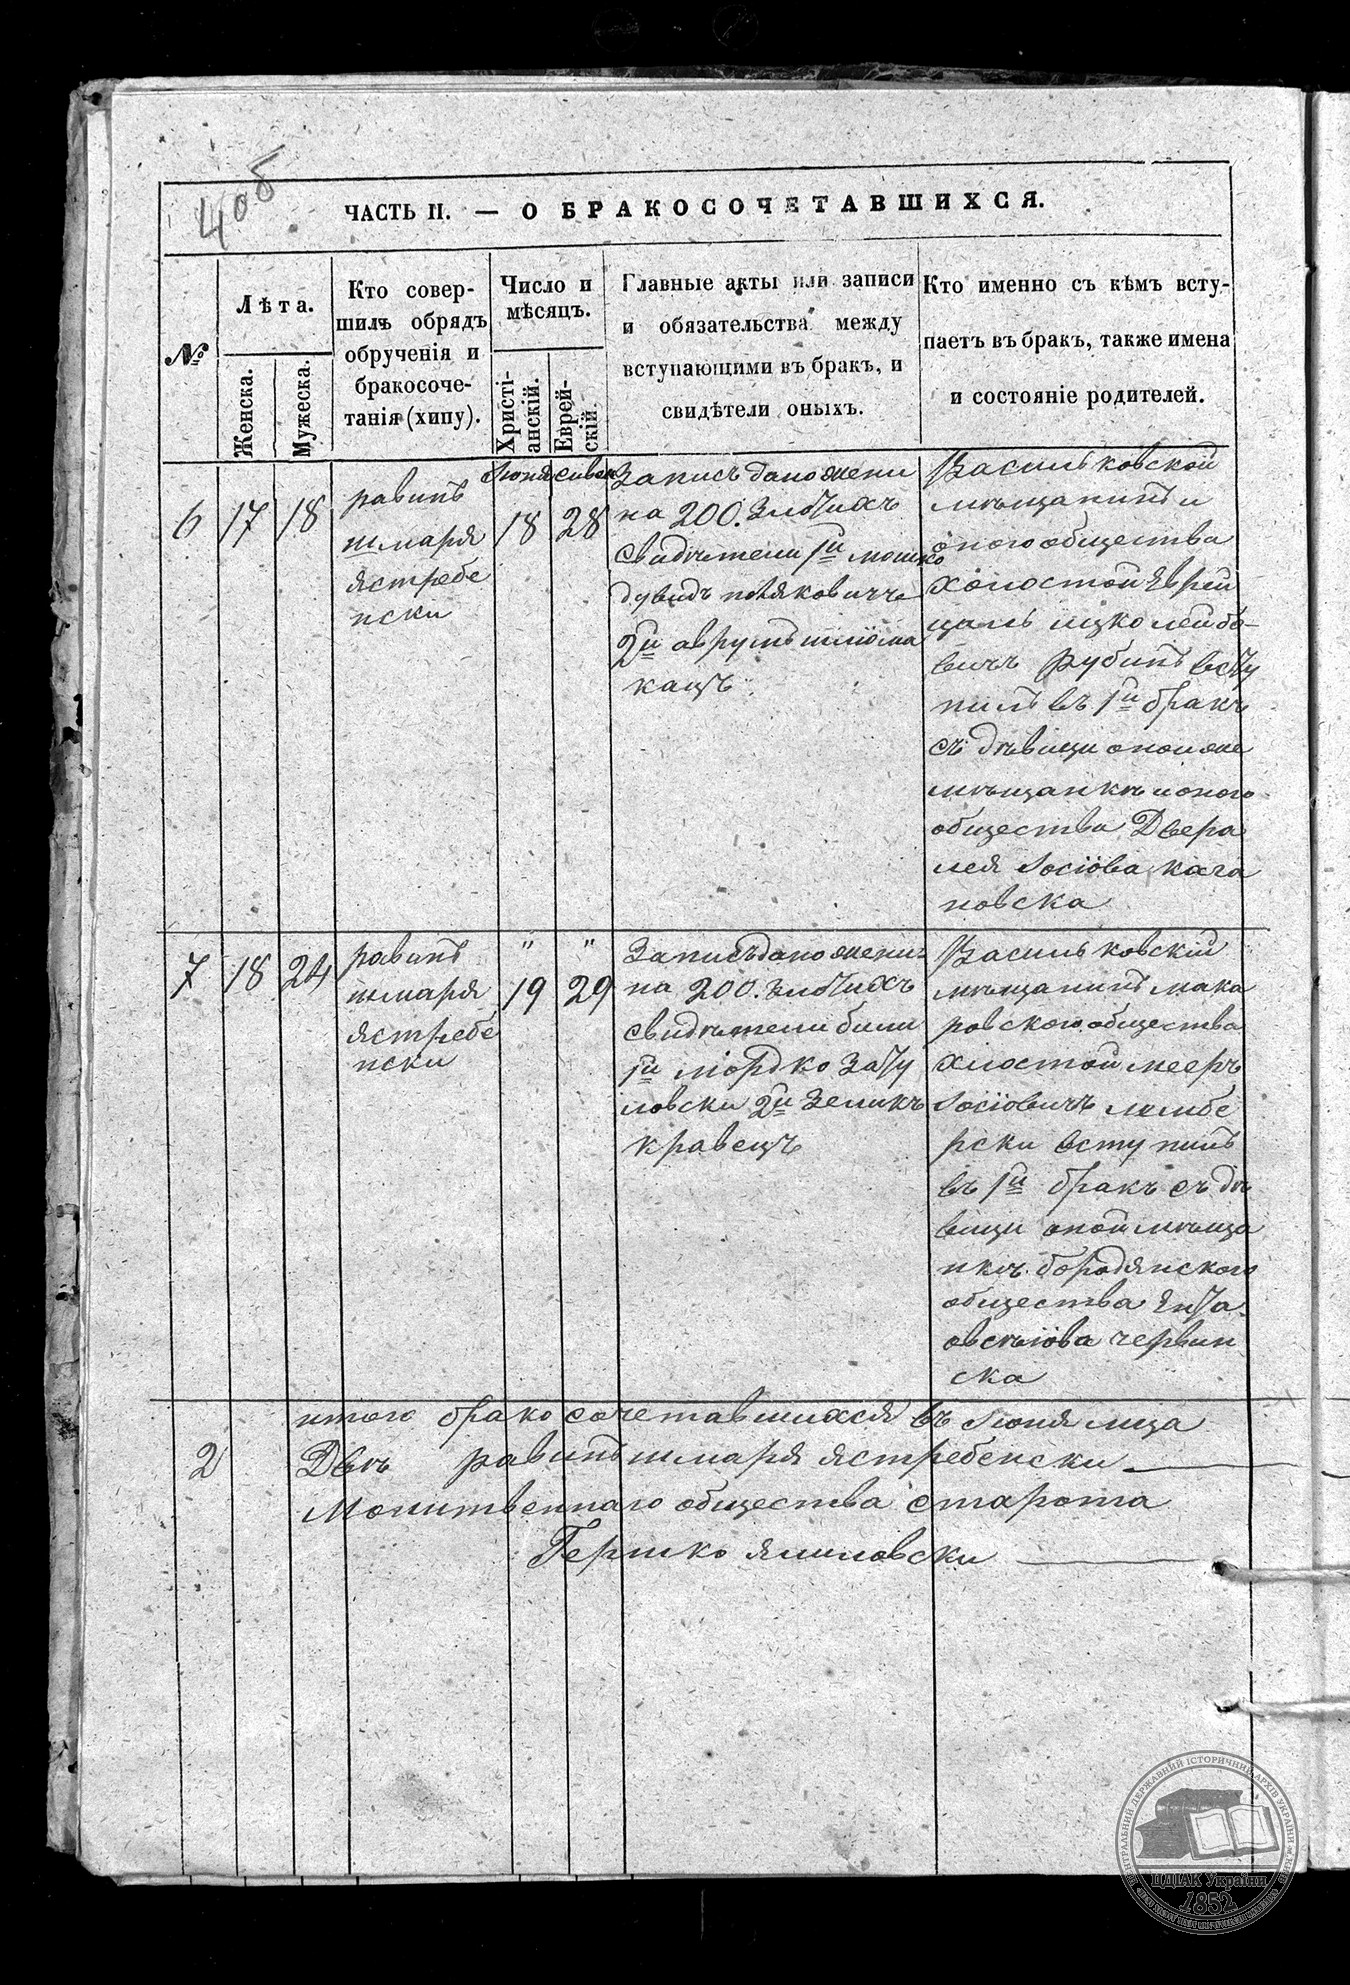 4об
ЧАСТЬ II. — О БРАКОСОЧЕТАВШИХСЯ.
№
Лѣта.
Женска.
Мужеска.
Кто совер-
шилъ обрядъ
обрученія и
бракосоче-
танія (хипу).
Число и
мѣсяцъ.
Христі-
анскій.
Еврей-
скій.
Главные акты или записи
и обязательства между
вступающими въ бракъ, и
свидѣтели оныхъ.
Кто именно съ кѣмъ всту-
паетъ въ бракъ, также имена
и состояніе родителей.
6
17
18
равинъ
шмаря
ястребе
нски
Іюня
18
сиван
28
Запись дано жени
на 200. злотихъ
свидѣтели 1й мошко
дувидъ
2й аврумъ шлиома
кацъ
Васильковской
мѣщанинъ и
оного общества
холостой Еврей
ицко лейбо-
вичъ рубинъ всту
пилъ въ 1й бракъ
съ дѣвици оной же
мѣщанкѣ и оного
общества Двера
лея Іосіова кага
новска
7
18
24
равинъ
шмаря
ястребе
нски
"
19
"
29
Запись дано жени
на 200. злотихъ
свидѣтели били
1й мордко зату
ловски 2й Зеликъ
кравецъ
Васильковскій
мѣщанинъ мака
ровского общества
хлостой мееръ
Іосіовичъ лембе
рски вступилъ
въ 1й бракъ съ дѣ
вици оной мѣща
нкѣ бородянского
общества Ента
овсѣіова червин
ска
2
итого бракосочетавшихся въ Іюня мца
Двѣ равинъ шмаря ястребенски
Молитвеннаго общества староста
Гершко ямповски
ЦЕНТРАЛЬНИЙ ДЕРЖАВНИЙ ІСТОРИЧНИЙ АРХІВ УКРАЇНИ м. КИЇВ
ЦДІАК України
1852